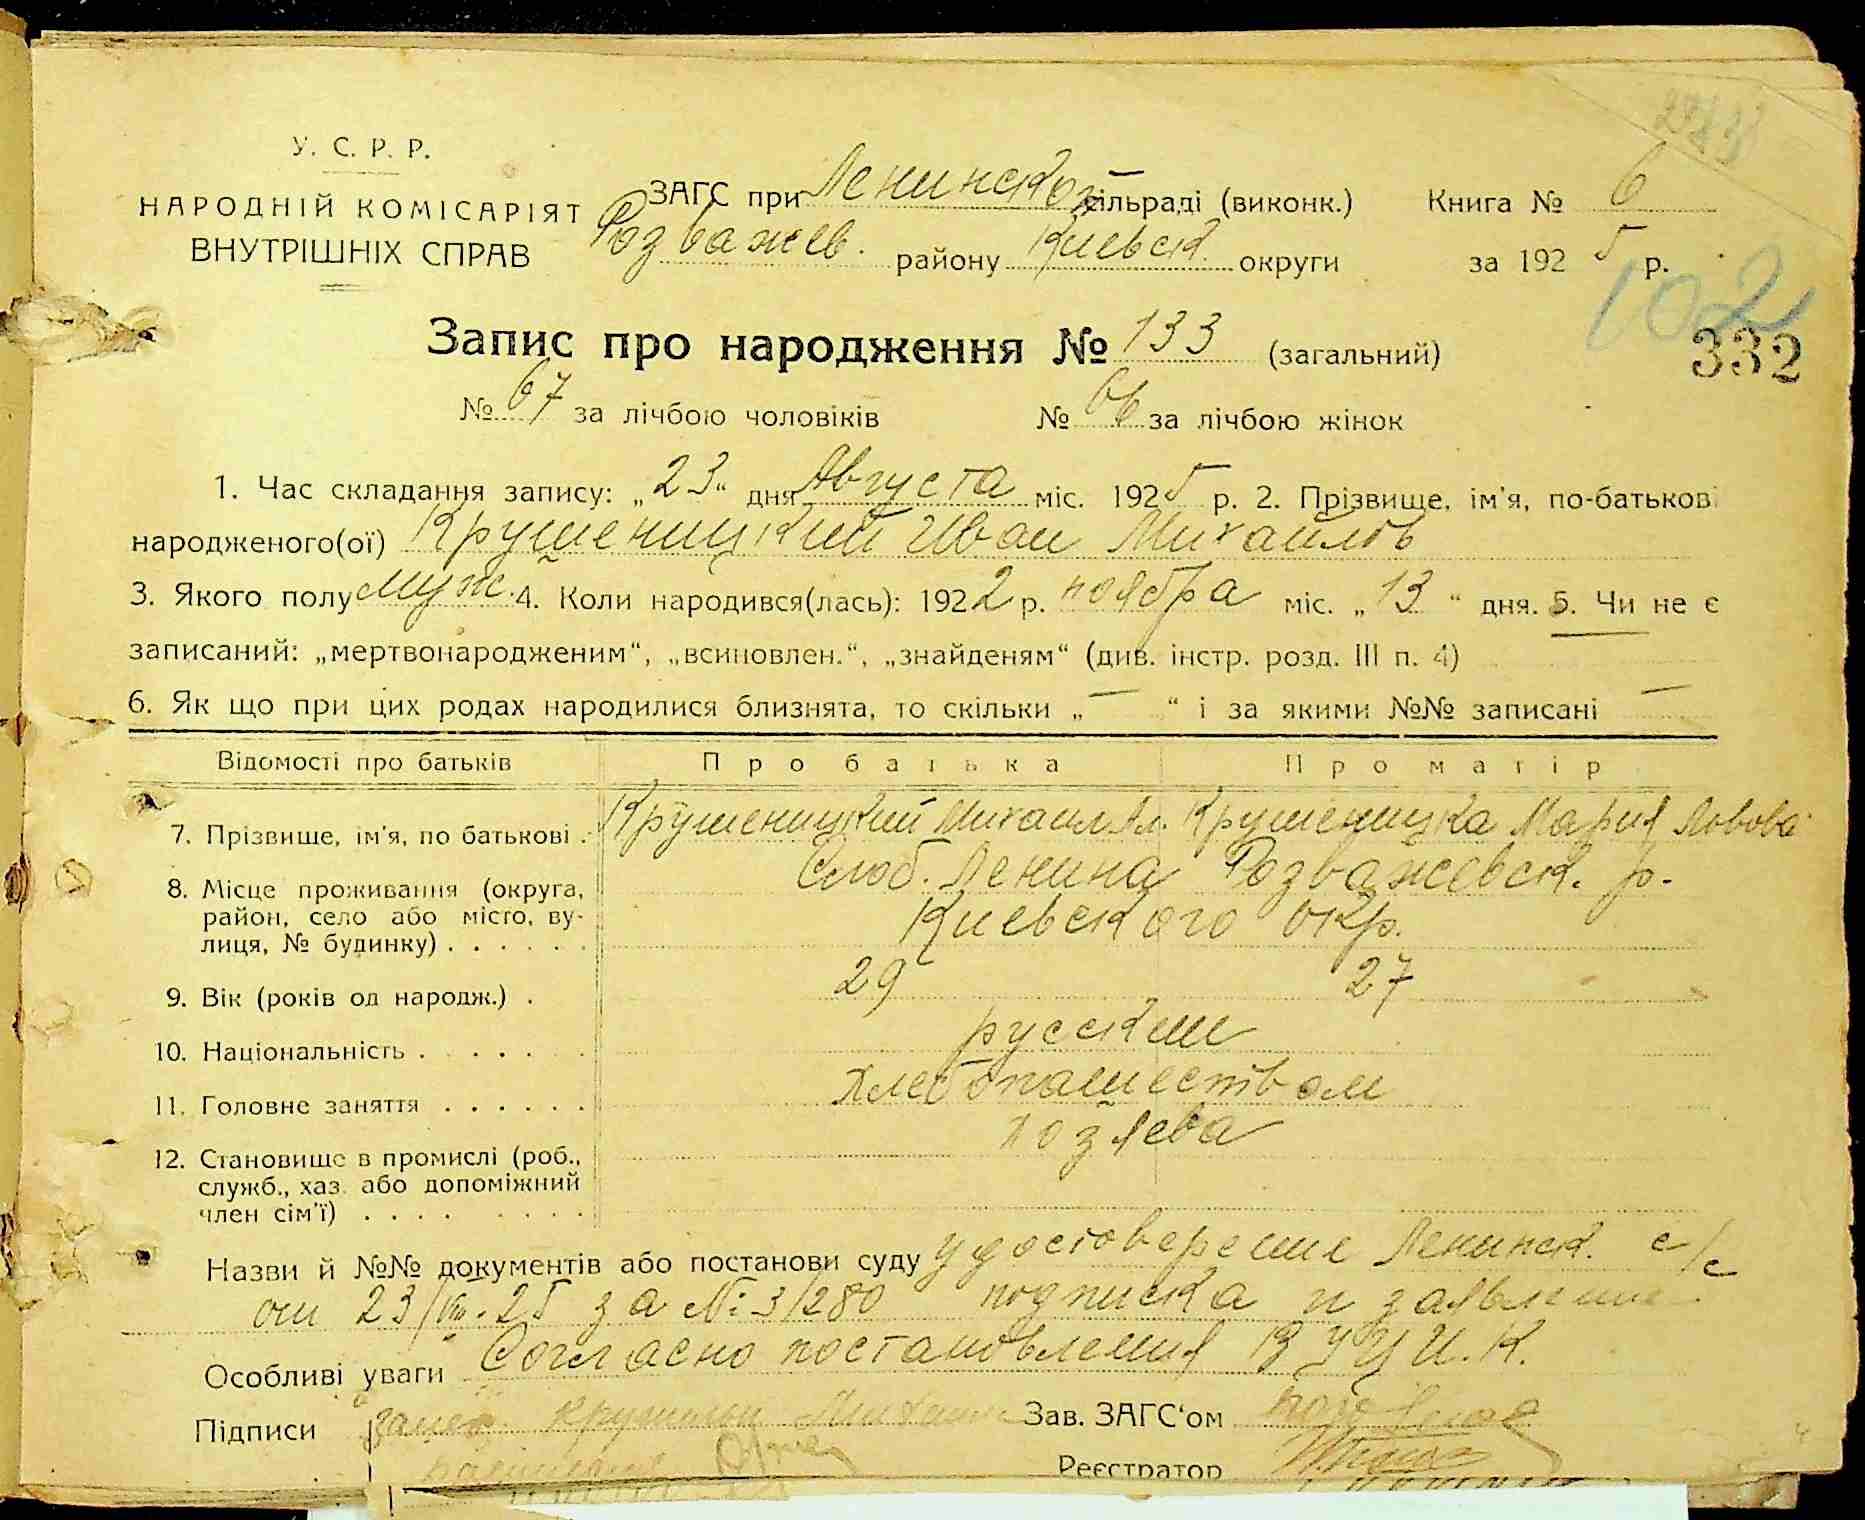 У. С. Р. Р.
НАРОДНІЙ КОМІСАРІЯТ
ВНУТРІШНІХ СПРАВ
ЗАГС при Ленинской сільраді (виконк.)
Розважев. району Киевск. округи
Книга № 6
за 1925 р.
102
332
Запис про народження № 133 (загальний)
№ 67 за лічбою чоловіків № 66 за лічбою жінок
1. Час складання запису: „23“ дня Августа міс. 1925 р. 2. Прізвище, ім'я, по-батькові
народженого(ої) Крушеницкий Иван Михайлов
3. Якого полу муж. 4. Коли народився(лась): 1922 р. ноября міс. „13“ дня. 5. Чи не є
записаний: „мертвонародженим“, „всиновлен.“, „знайденям“ (див. інстр. розд. III п. 4)
6. Як що при цих родах народилися близнята, то скільки „—“ і за якими №№ записані —
Відомості про батьків Про батька Про матір
7. Прізвище, ім'я, по батькові . Крушеницкий Михаил Ал. Крушеницка Мария Лвова
8. Місце проживання (округа, Слоб. Ленина Розважевск. р.
район, село або місто, ву- Киевского окр.
лиця, № будинку) . . . . . .
9. Вік (років од народж.) . 29 27
10. Національність . . . . . . . русский
11. Головне заняття . . . . . . хлебопашеством
12. Становище в промислі (роб., хозяева
служб., хаз. або допоміжний
член сім'ї) . . . . . . . .
Назви й №№ документів або постанови суду удостоверение Ленинск. с/с
от 23/VIII-25 за №: 3/280 подписка и заявление
Особливі уваги Согласно постановления В У Ц И. К.
Підписи Зав. ЗАГС'ом
Реєстратор